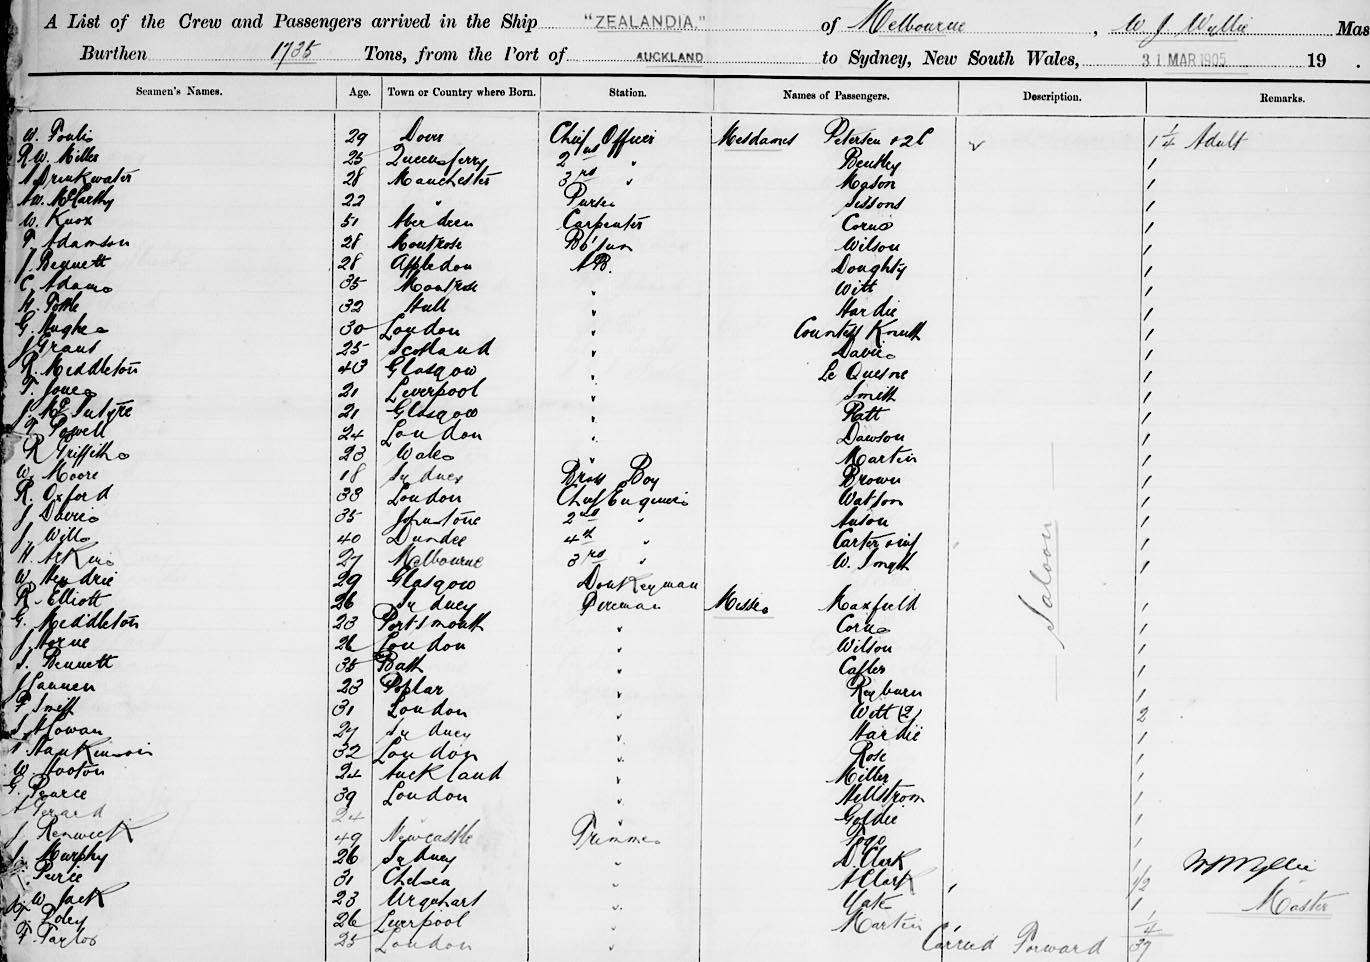 A List of the Crew and Passengers arrived in the Ship "ZEALANDIA." of Melbourne, W J Wyllie Mas
Burthen 1735 Tons, from the Port of AUCKLAND to Sydney, New South Wales, 31 MAR 1905 19 .
Seamen's Names. Age. Town or Country where Born. Station. Names of Passengers. Description. Remarks.
29 Dover Chief Officer Mesdames Petersen & 2 C 1 1/4 Adult
R.W. Miller 25 Queensferry 2nd " Bentley 1
Drinkwater 28 Manchester 3rd " Mason 1
McCarthy 22 " Purser Sissons 1
W. Knox 51 Aberdeen Carpenter 1
Adamson 28 Montrose Bo'sun Wilson 1
J Bennett 28 Appledon A.B. Doughty 1
C. Adams 35 Montrose " Witt 1
H. 32 Hull " Hardie 1
G. Hughes 30 London " Countess Knuth 1
J Grant 25 Scotland " Davies 1
R. Middleton 43 Glasgow " Le Quesne 1
T. Jones 21 Liverpool " Smith 1
J. McIntyre 21 Glasgow " Ratt 1
24 London " Dawson 1
R Griffiths 23 Wales " Martin 1
W. Moore 18 Sydney Brass Boy Brown 1
R. Oxford 33 London Chief Engineer Watson 1
J Davies 35 Johnstone 2nd " Anson 1
J. Wills 40 Dundee 4th " Carter & inf 1
H. 27 Melbourne 3rd " W. Smyth 1
W. Hendrie 29 Glasgow Donkeyman
R. Elliott 26 Sydney Fireman Misses Maxfield 1
G. Middleton 23 Portsmouth " 1
J. Horne 26 London " Wilson 1
S. Bennett 35 Bath " 1
J Lannen 23 Poplar " Rayburn 1
F Smith 31 London " Witt (2) 2
27 Sydney " Hardie 1
Hankinson 32 London " Rose 1
W. Hooton 24 Auckland " Miller 1
G. Pearce 39 London " Hellstrom 1
A Gerard 24 " " Goldie 1
J Renwick 49 Newcastle Trimmer Togo 1
J. Murphy 26 Sydney " D. Clark 1
Peirce 31 Chelsea " A Clark 1/2
W Jack 23 Urquhart " 1
Foley 26 Liverpool " Martin 1/4
F. Taylor 25 London " Carried Forward 37
Saloon
W J Wyllie
Master